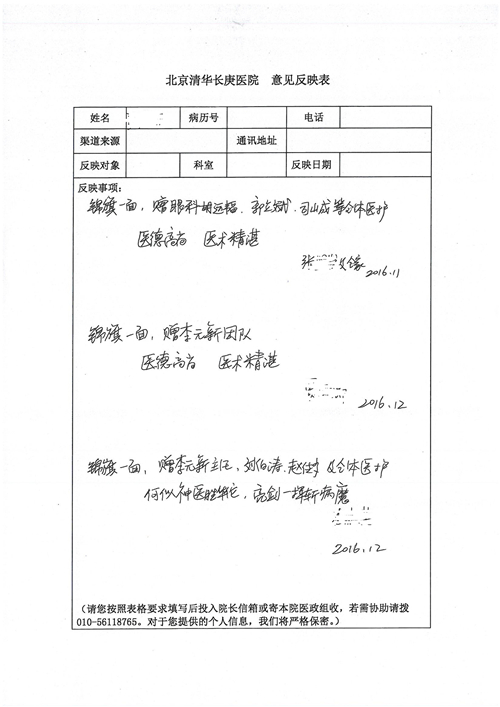 北京清华长庚医院 意见反映表
姓名 病历号 电话
渠道来源 通讯地址
反映对象 科室 反映日期
反映事项:
锦旗一面，赠眼科 等全体医护
医德高尚 医术精湛
张 全家
2016.11
锦旗一面，赠李元新团队
医德高尚 医术精湛
2016.12
锦旗一面，赠李元新主任、刘伯涛、赵 及全体医护
何似神医胜华佗，亮剑一挥斩病魔
2016.12
(请您按照表格要求填写后投入院长信箱或寄本院医政组收，若需协助请拨
010-56118765。对于您提供的个人信息，我们将严格保密。)